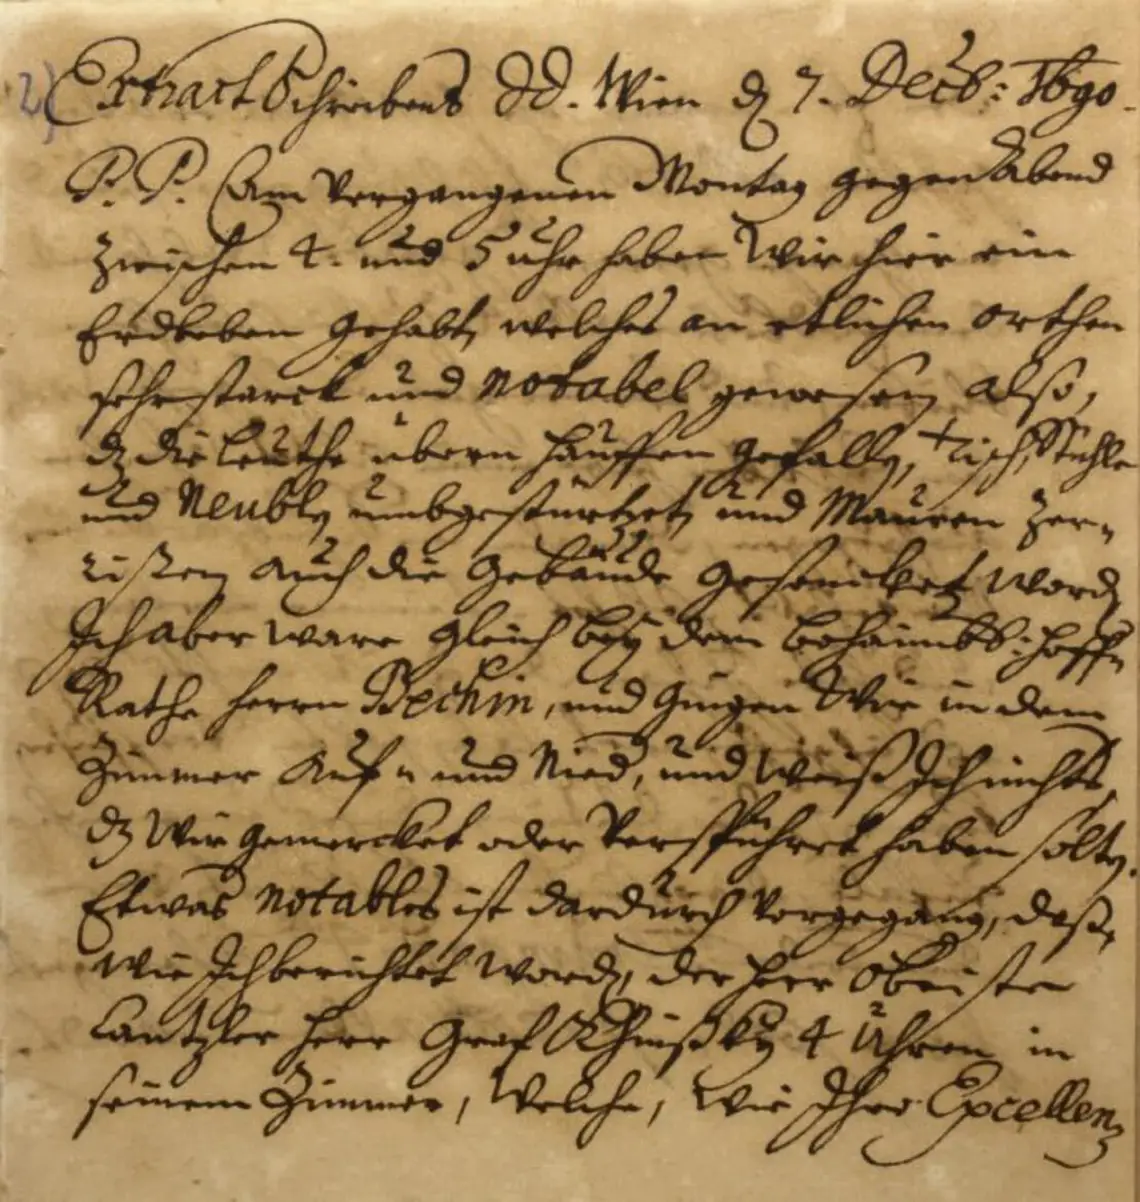 2) Extract Schreibens dd. Wien dz 7. Decb: 1690.
P. P. Am vergangenen Montag gegen Abend
zwischen 4. und 5 uhr haben Wir hier ein
Erdbeben gehabt, welches an etlichen orthen
sehr starck und notabel gewesen, also,
dz die leuthe übern hauffen gefallen, Tisch, Stühle
und umbgestürtzet, und Mauren zer-
rißen, auch die Gebäude gesencket worden,
Ich aber ware gleich bey dem behaimbs: hoff
Rathe herrn Bechin, und giengen Wir in dem
Zimmer auf- und Nied, und weiß Ich nichts,
dz Wir gemercket oder verspühret haben solten.
Etwas notables ist dardurch vorgegang, daß,
wie Ich berichtet worden, der herr Obriste
Cantzler herr Graf Khinßky 4 Uhren in
seinem Zimmer, welche, wie Ihro Excellenz